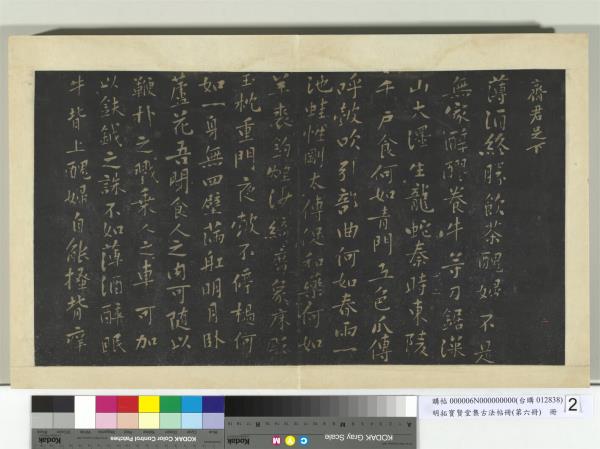 齋君足下
薄酒終勝飲茶醜婦不是
無家醇醪養牛等刀鋸深
山大澤生龍蛇秦時東陵
千戶食何如青門五色瓜傳
呼鼓吹引部曲何如春雨一
池蛙性剛太傅促和藥何如
羊裘釣煙沙綺席象床彫
玉枕重門夜鼓不停撾何
如一身無四壁滿船明月臥
蘆花吾聞食人之肉可隨以
鞭朴之戮乘人之車可加
以鈇鉞之誅不如薄酒醉眠
牛背上醜婦自能搔背癢
購帖 000006N000000000(台購 012838)
明拓寶賢堂集古法帖冊(第六冊) 冊
2
Kodak KODAK Color Control Patches
Kodak C Y M KODAK Gray Scale